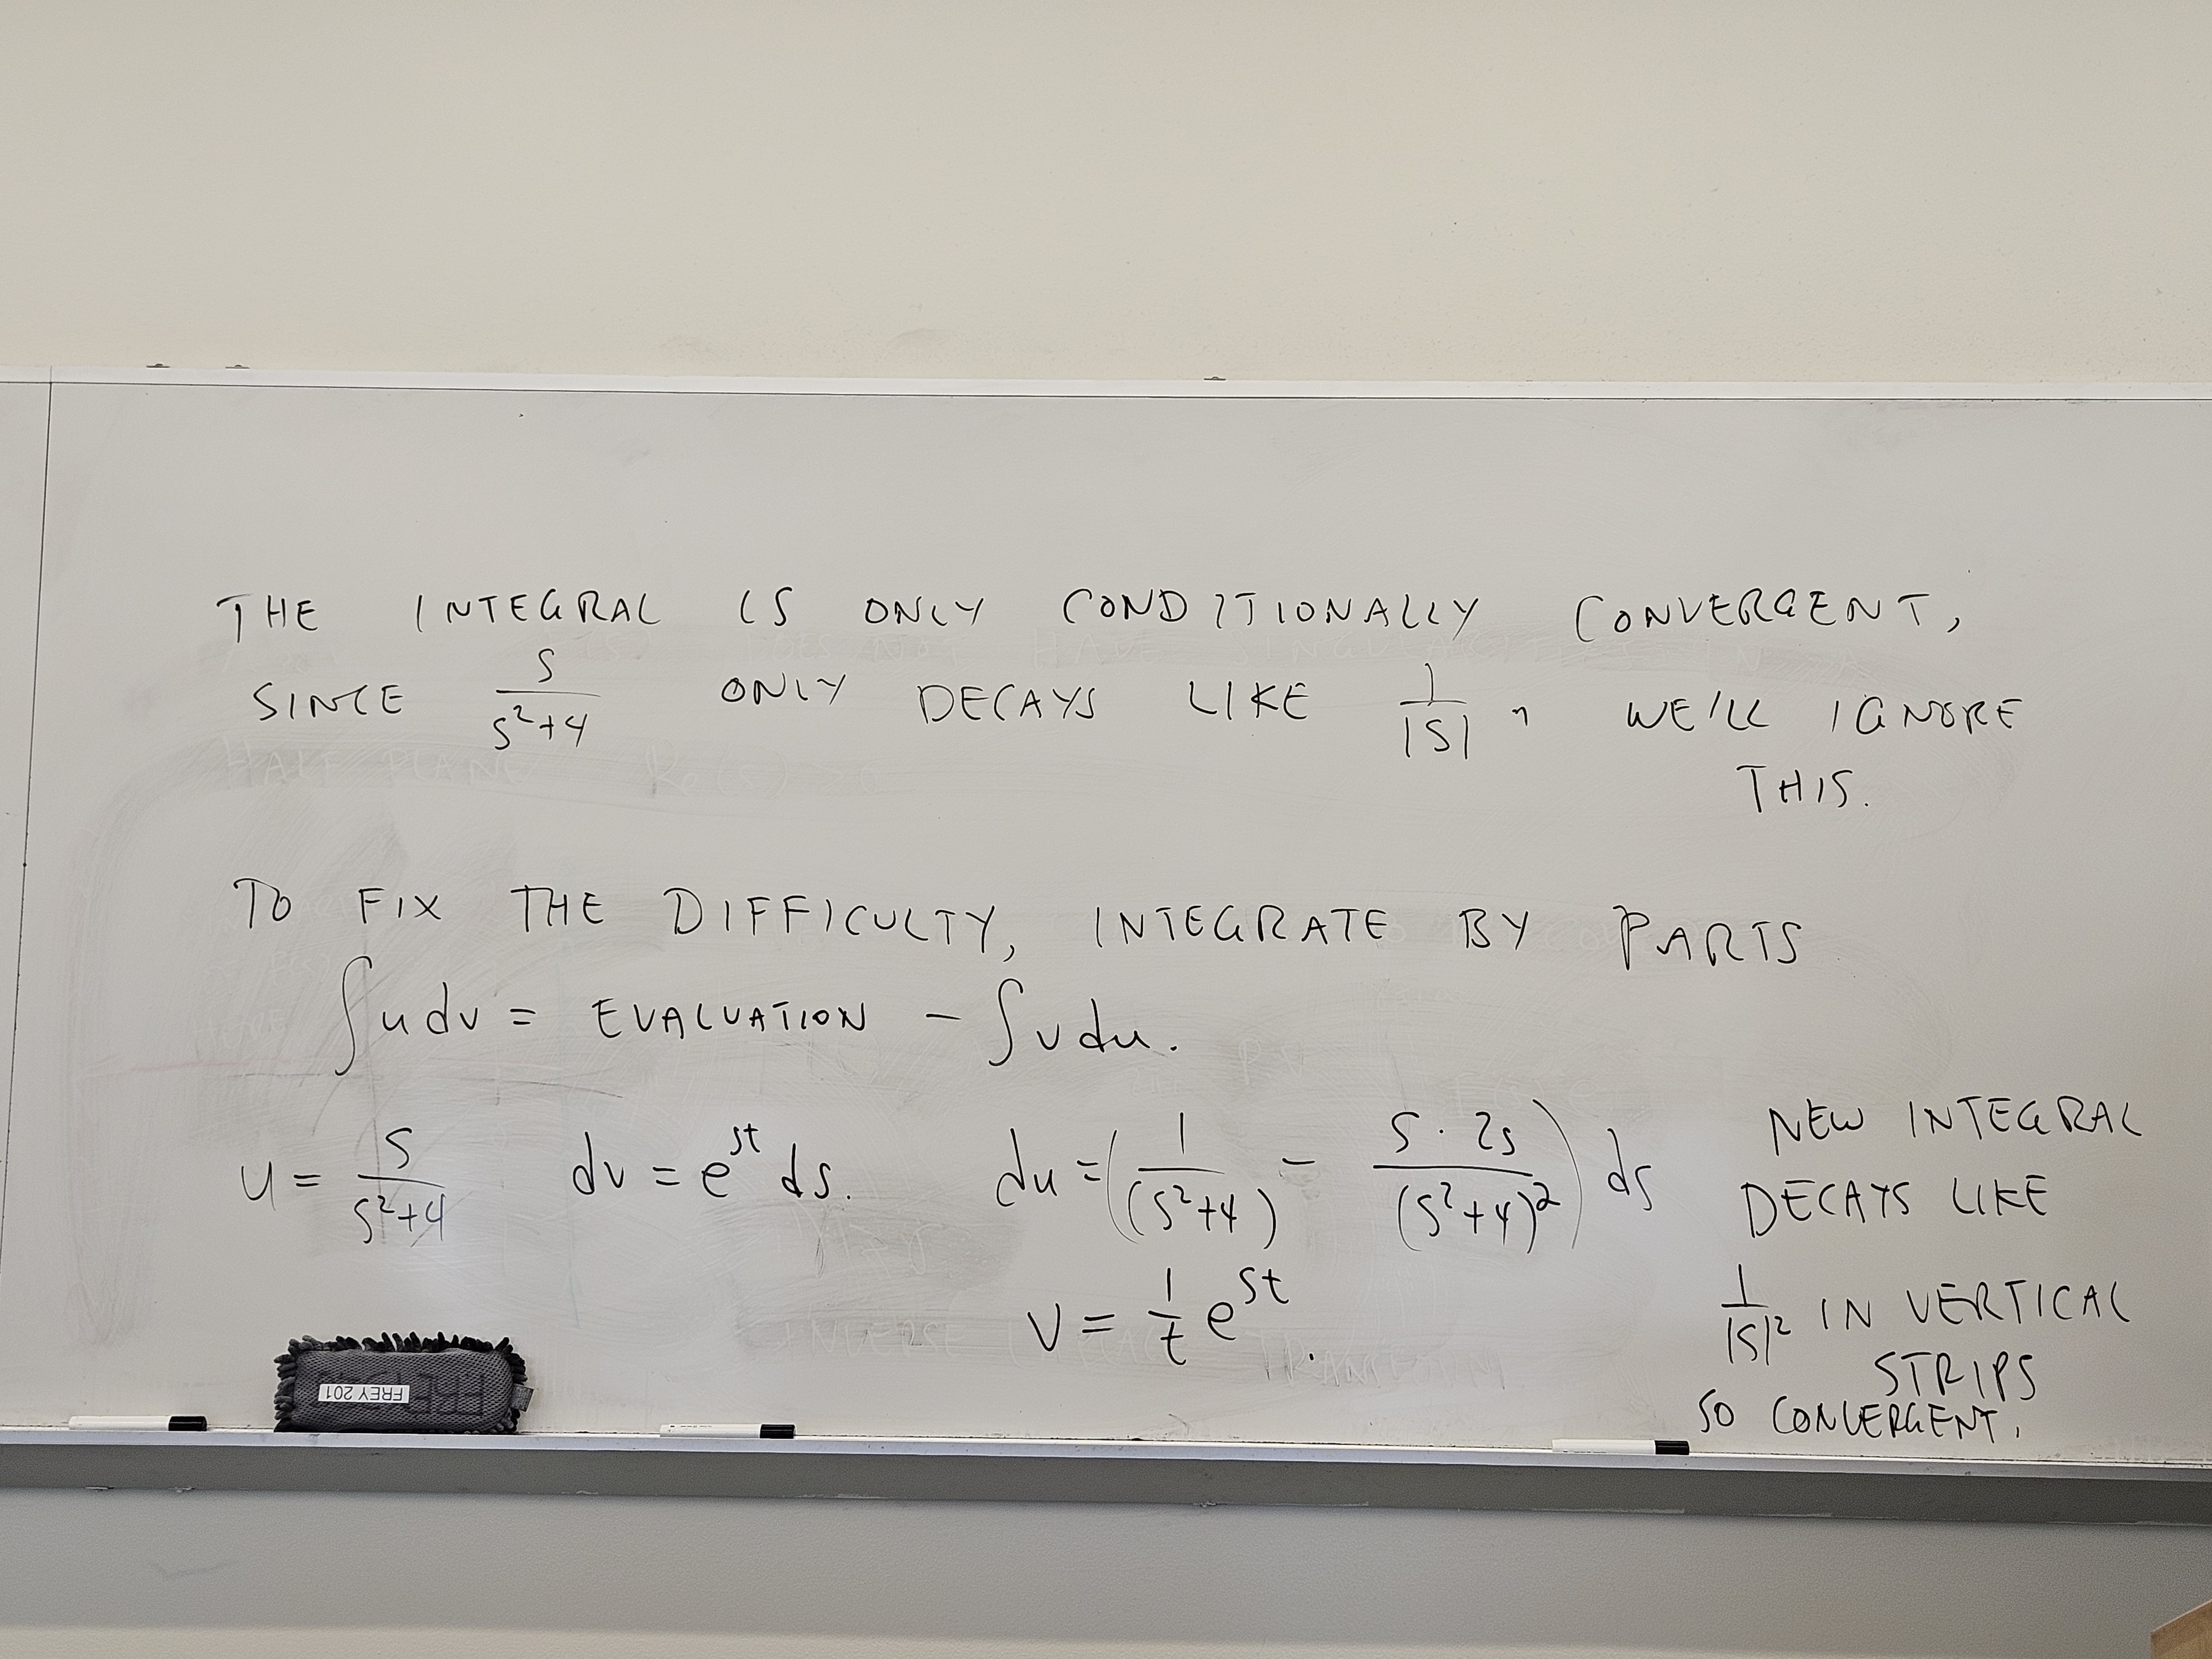 THE INTEGRAL IS ONLY CONDITIONALLY CONVERGENT,
SINCE s/(s²+4) ONLY DECAYS LIKE 1/|s|, WE'LL IGNORE
THIS.
TO FIX THE DIFFICULTY, INTEGRATE BY PARTS
∫u dv = EVALUATION - ∫v du.
u = s/(s²+4) dv = e^{st} ds. du = (1/(s²+4) - s·2s/(s²+4)²) ds
v = 1/t e^{st}.
NEW INTEGRAL
DECAYS LIKE
1/|s|² IN VERTICAL
STRIPS
SO CONVERGENT.
FREY 201